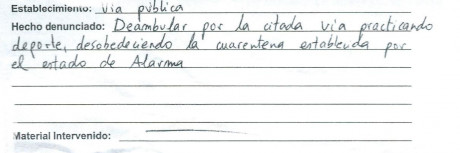 Establecimiento: via pública
Hecho denunciado: Deambular por la citada via practicando
deporte, desobedeciendo la cuarentena establecida por
el estado de Alarma
Material Intervenido: